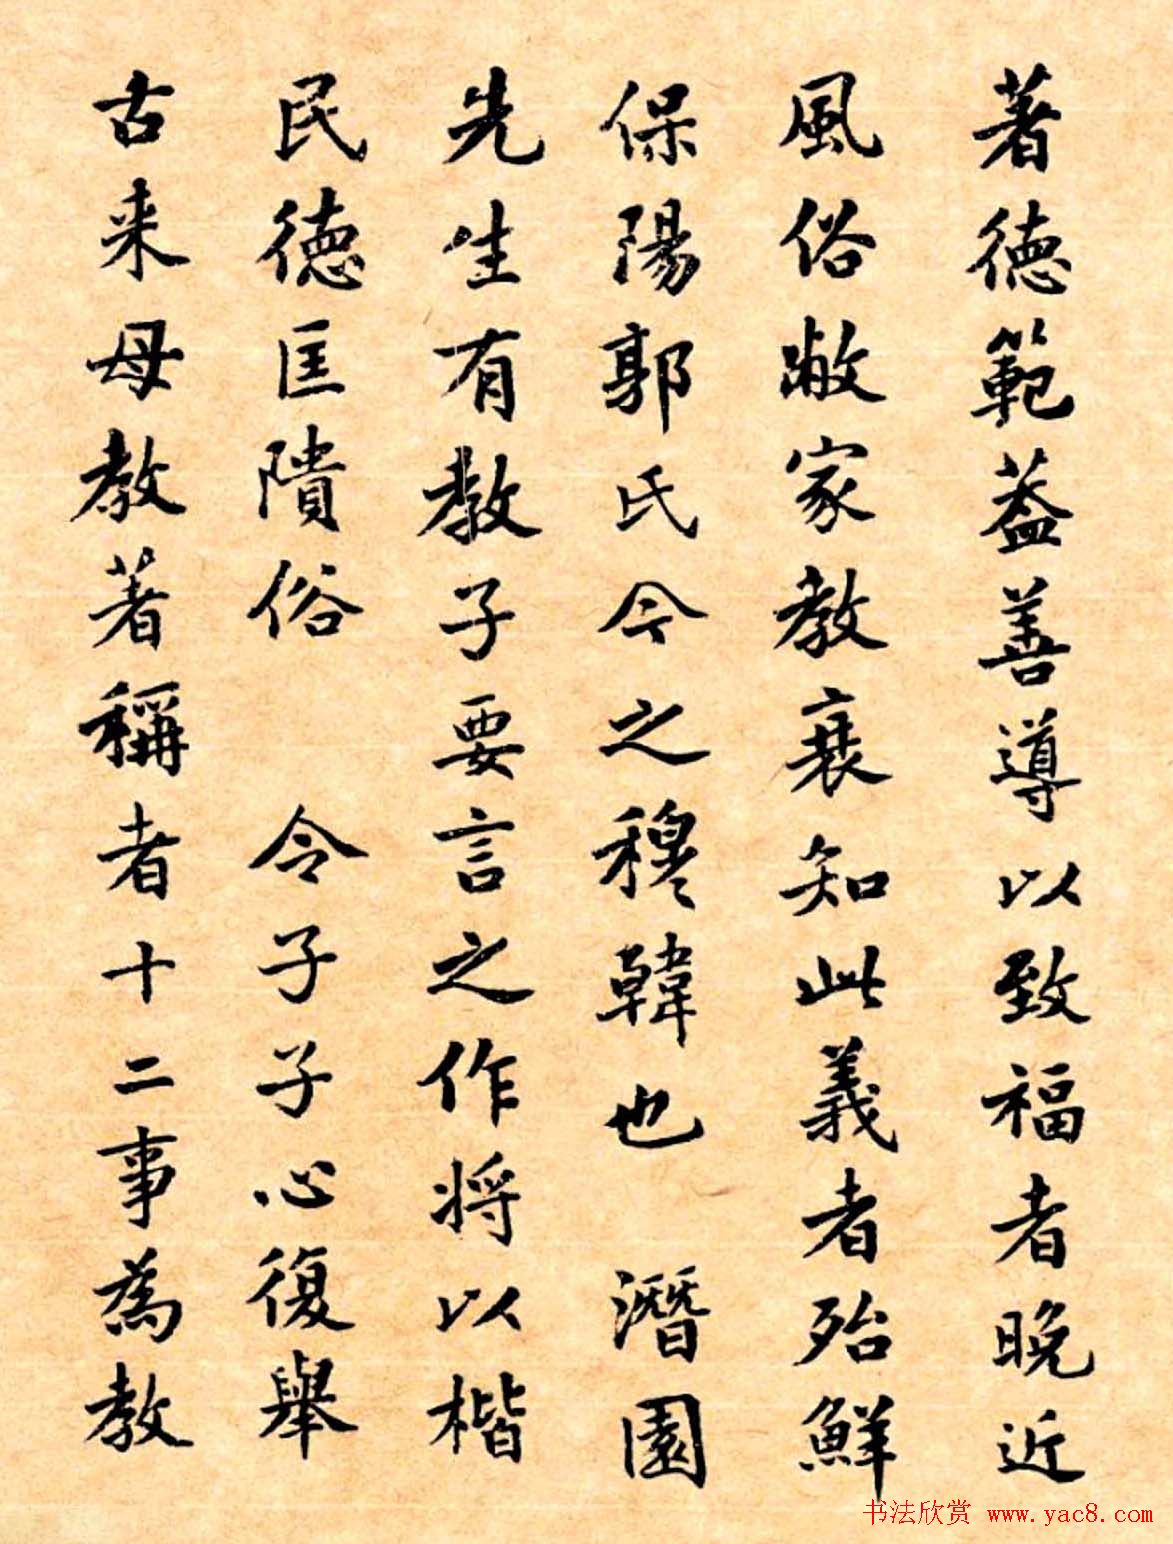 著德範蓋善導以致福者晚近
風俗敝家教衰知此義者殆鮮
保陽郭氏今之穆韓也 潛園
先生有教子要言之作將以楷
民德匡隤俗 令子子心復舉
古来母教著稱者十二事為教
书法欣赏 www.yac8.com